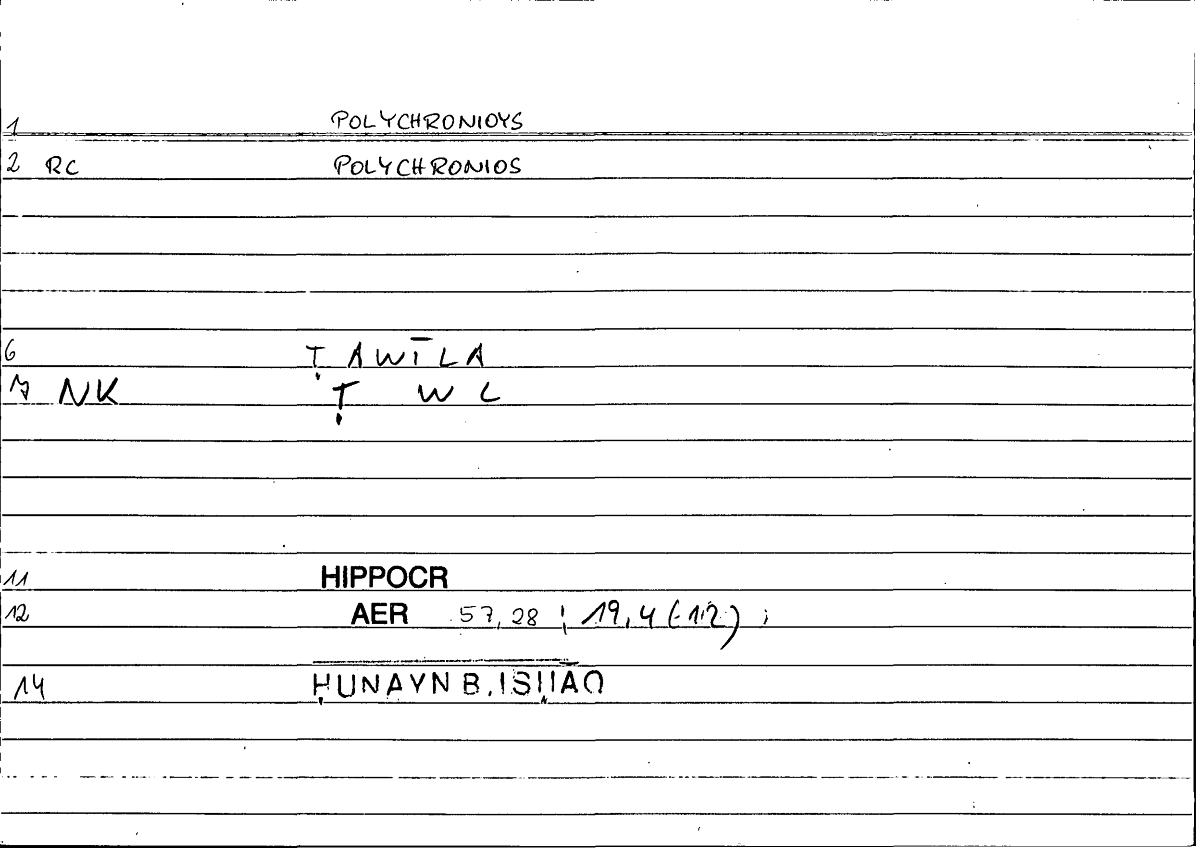 1 POLYCHRONIOYS
2 RC POLYCHRONIOS
6 ṬAWĪLA
7 NK Ṭ W L
11 HIPPOCR
12 AER 57,28 ; 19,4 (-12) ;
14 ḤUNAYN B. ISḤĀQ